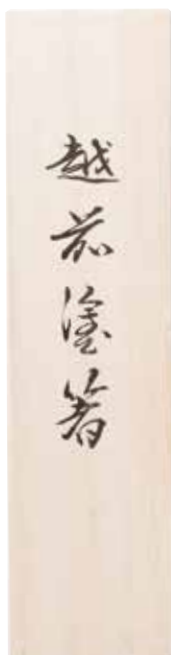 越前塗箸